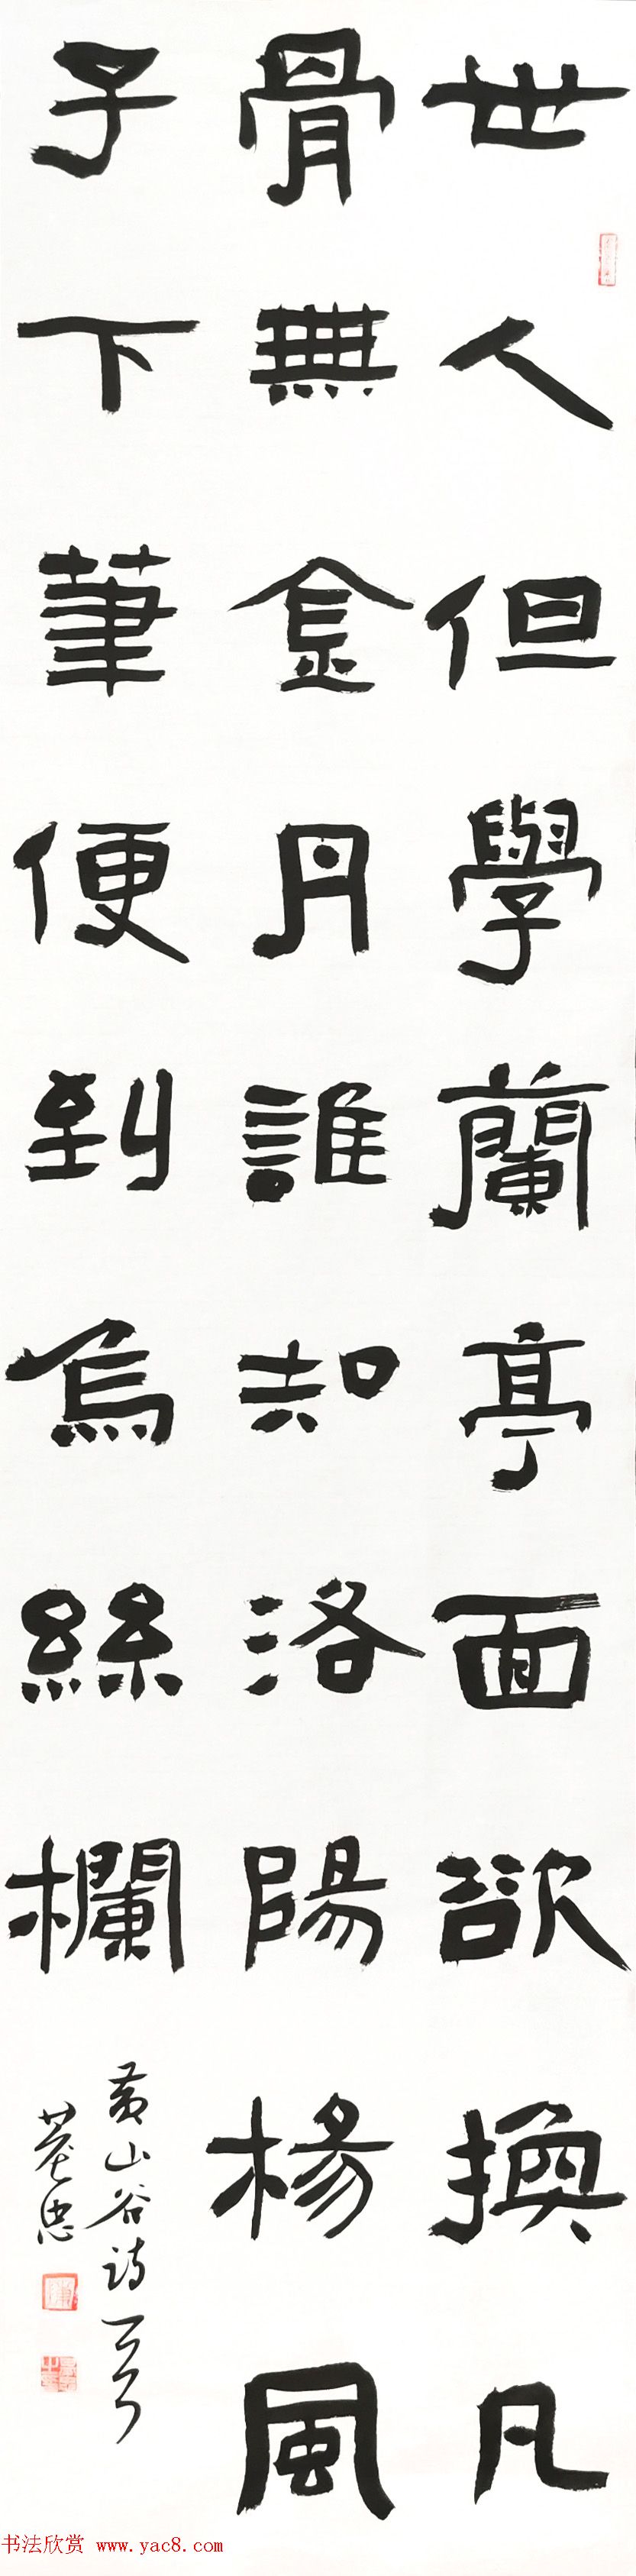 世人但學蘭亭面欲換凡
骨無金丹誰知洛陽楊風
子下筆便到烏絲欄
黃山谷詩一首
書法欣赏 www.yac8.com